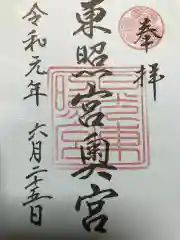 奉拝
東照宮奥宮
令和元年 六月二十五日